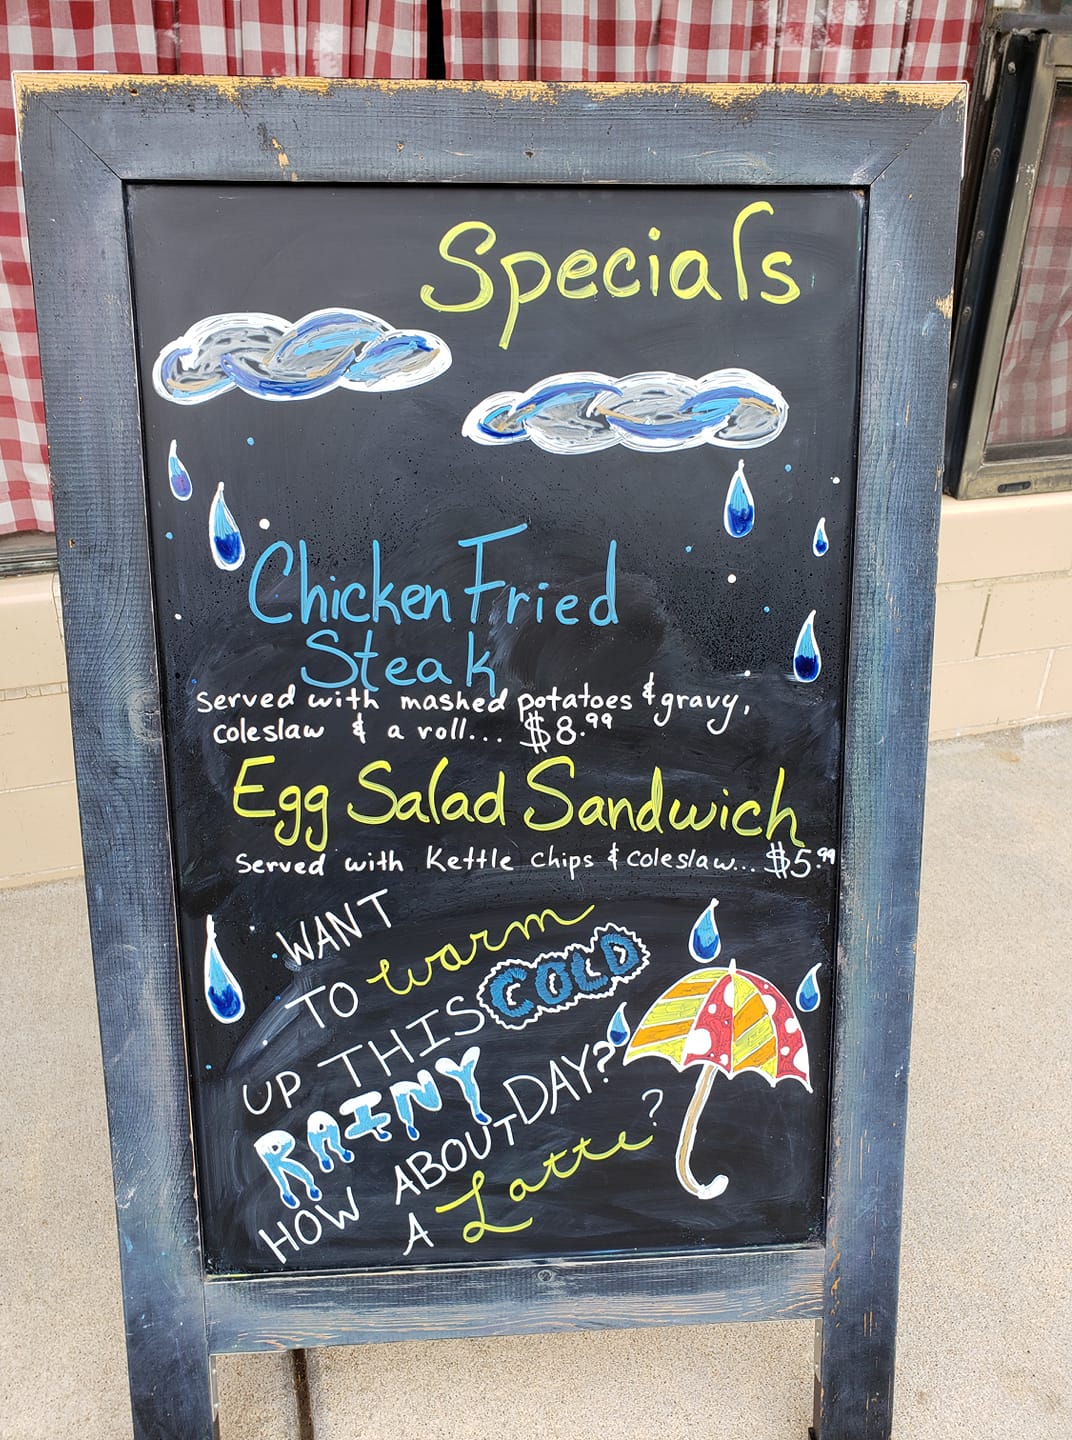 Specials
Chicken Fried
Steak
served with mashed potatoes & gravy,
coleslaw & a roll... $8.99
Egg Salad Sandwich
Served with Kettle Chips & coleslaw... $5.99
WANT
TO warm
UP THIS COLD
RAINY DAY?
HOW ABOUT
A Latte?